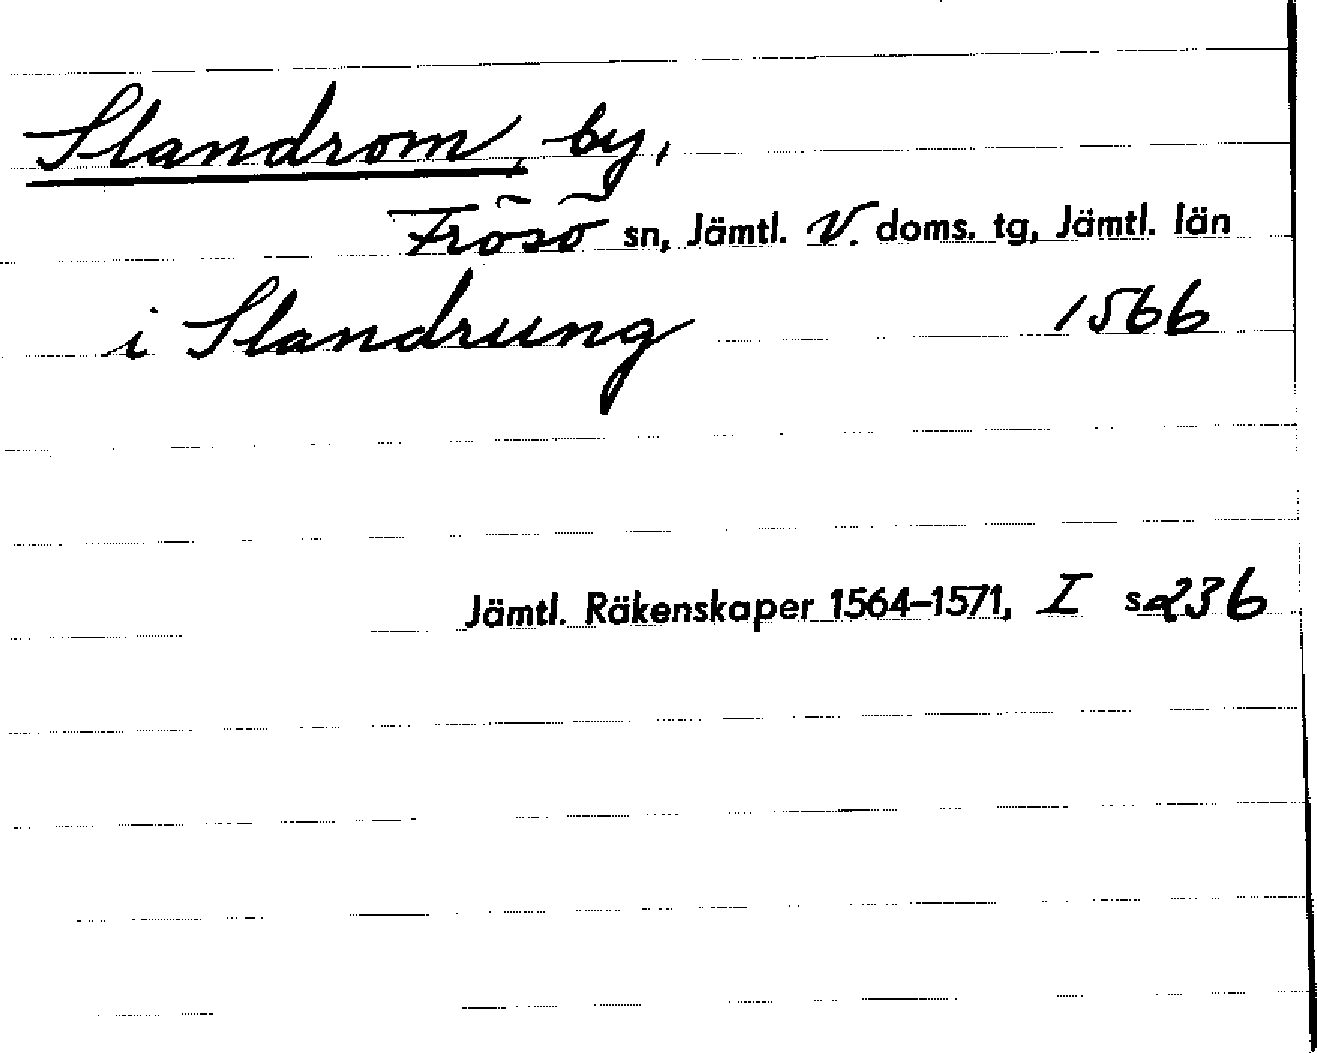 Slandrom, by,
Frösö sn, Jämtl. V. doms. tg, Jämtl. län
i Slandrung 1566
Jämtl. Räkenskaper 1564–1571, I s 236